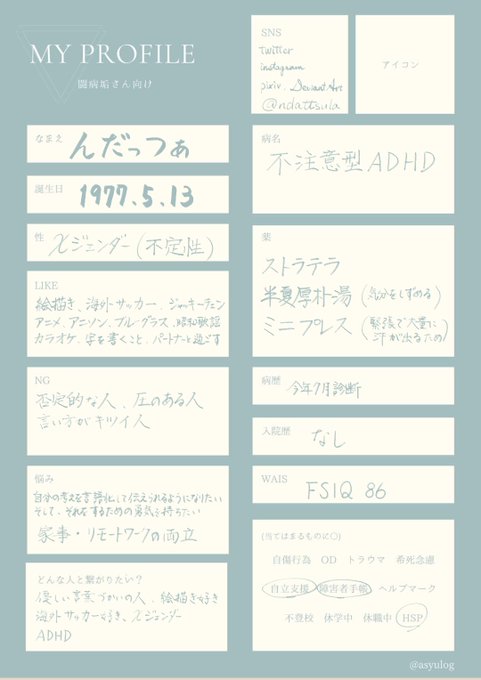 MY PROFILE
闘病垢さん向け
SNS
twitter
instagram
pixiv. DeviantArt
@ndattsula
アイコン
なまえ
んだっつぁ
誕生日
1977.5.13
性
Xジェンダー(不定性)
LIKE
絵描き、海外サッカー、ジャッキーチェン
アニメ、アニソン、ブルーグラス、昭和歌謡
カラオケ、字を書くこと、パートナーと過ごす
NG
否定的な人、圧のある人
言い方がキツイ人
悩み
自分の考えを言語化して伝えられるようになりたい
そして、それをするための勇気も持ちたい
家事・リモートワークの両立
どんな人と繋がりたい?
優しい言葉づかいの人、絵描き好き
海外サッカー好き、Xジェンダー
ADHD
病名
不注意型ADHD
薬
ストラテラ
半夏厚朴湯(気分をしずめる)
ミニプレス(緊張で大量に
汗が出るため)
病歴
今年7月診断
入院歴
なし
WAIS
FSIQ 86
(当てはまるものに○)
自傷行為 OD トラウマ 希死念慮
自立支援 障害者手帳 ヘルプマーク
不登校 休学中 休職中 HSP
@asyulog